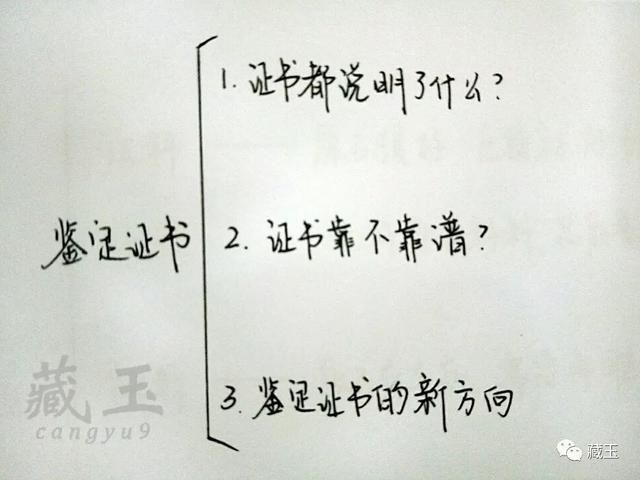 1. 证书都说明了什么?
鉴定证书
2. 证书靠不靠谱?
3. 鉴定证书的新方向
藏玉
cangyu9
藏玉